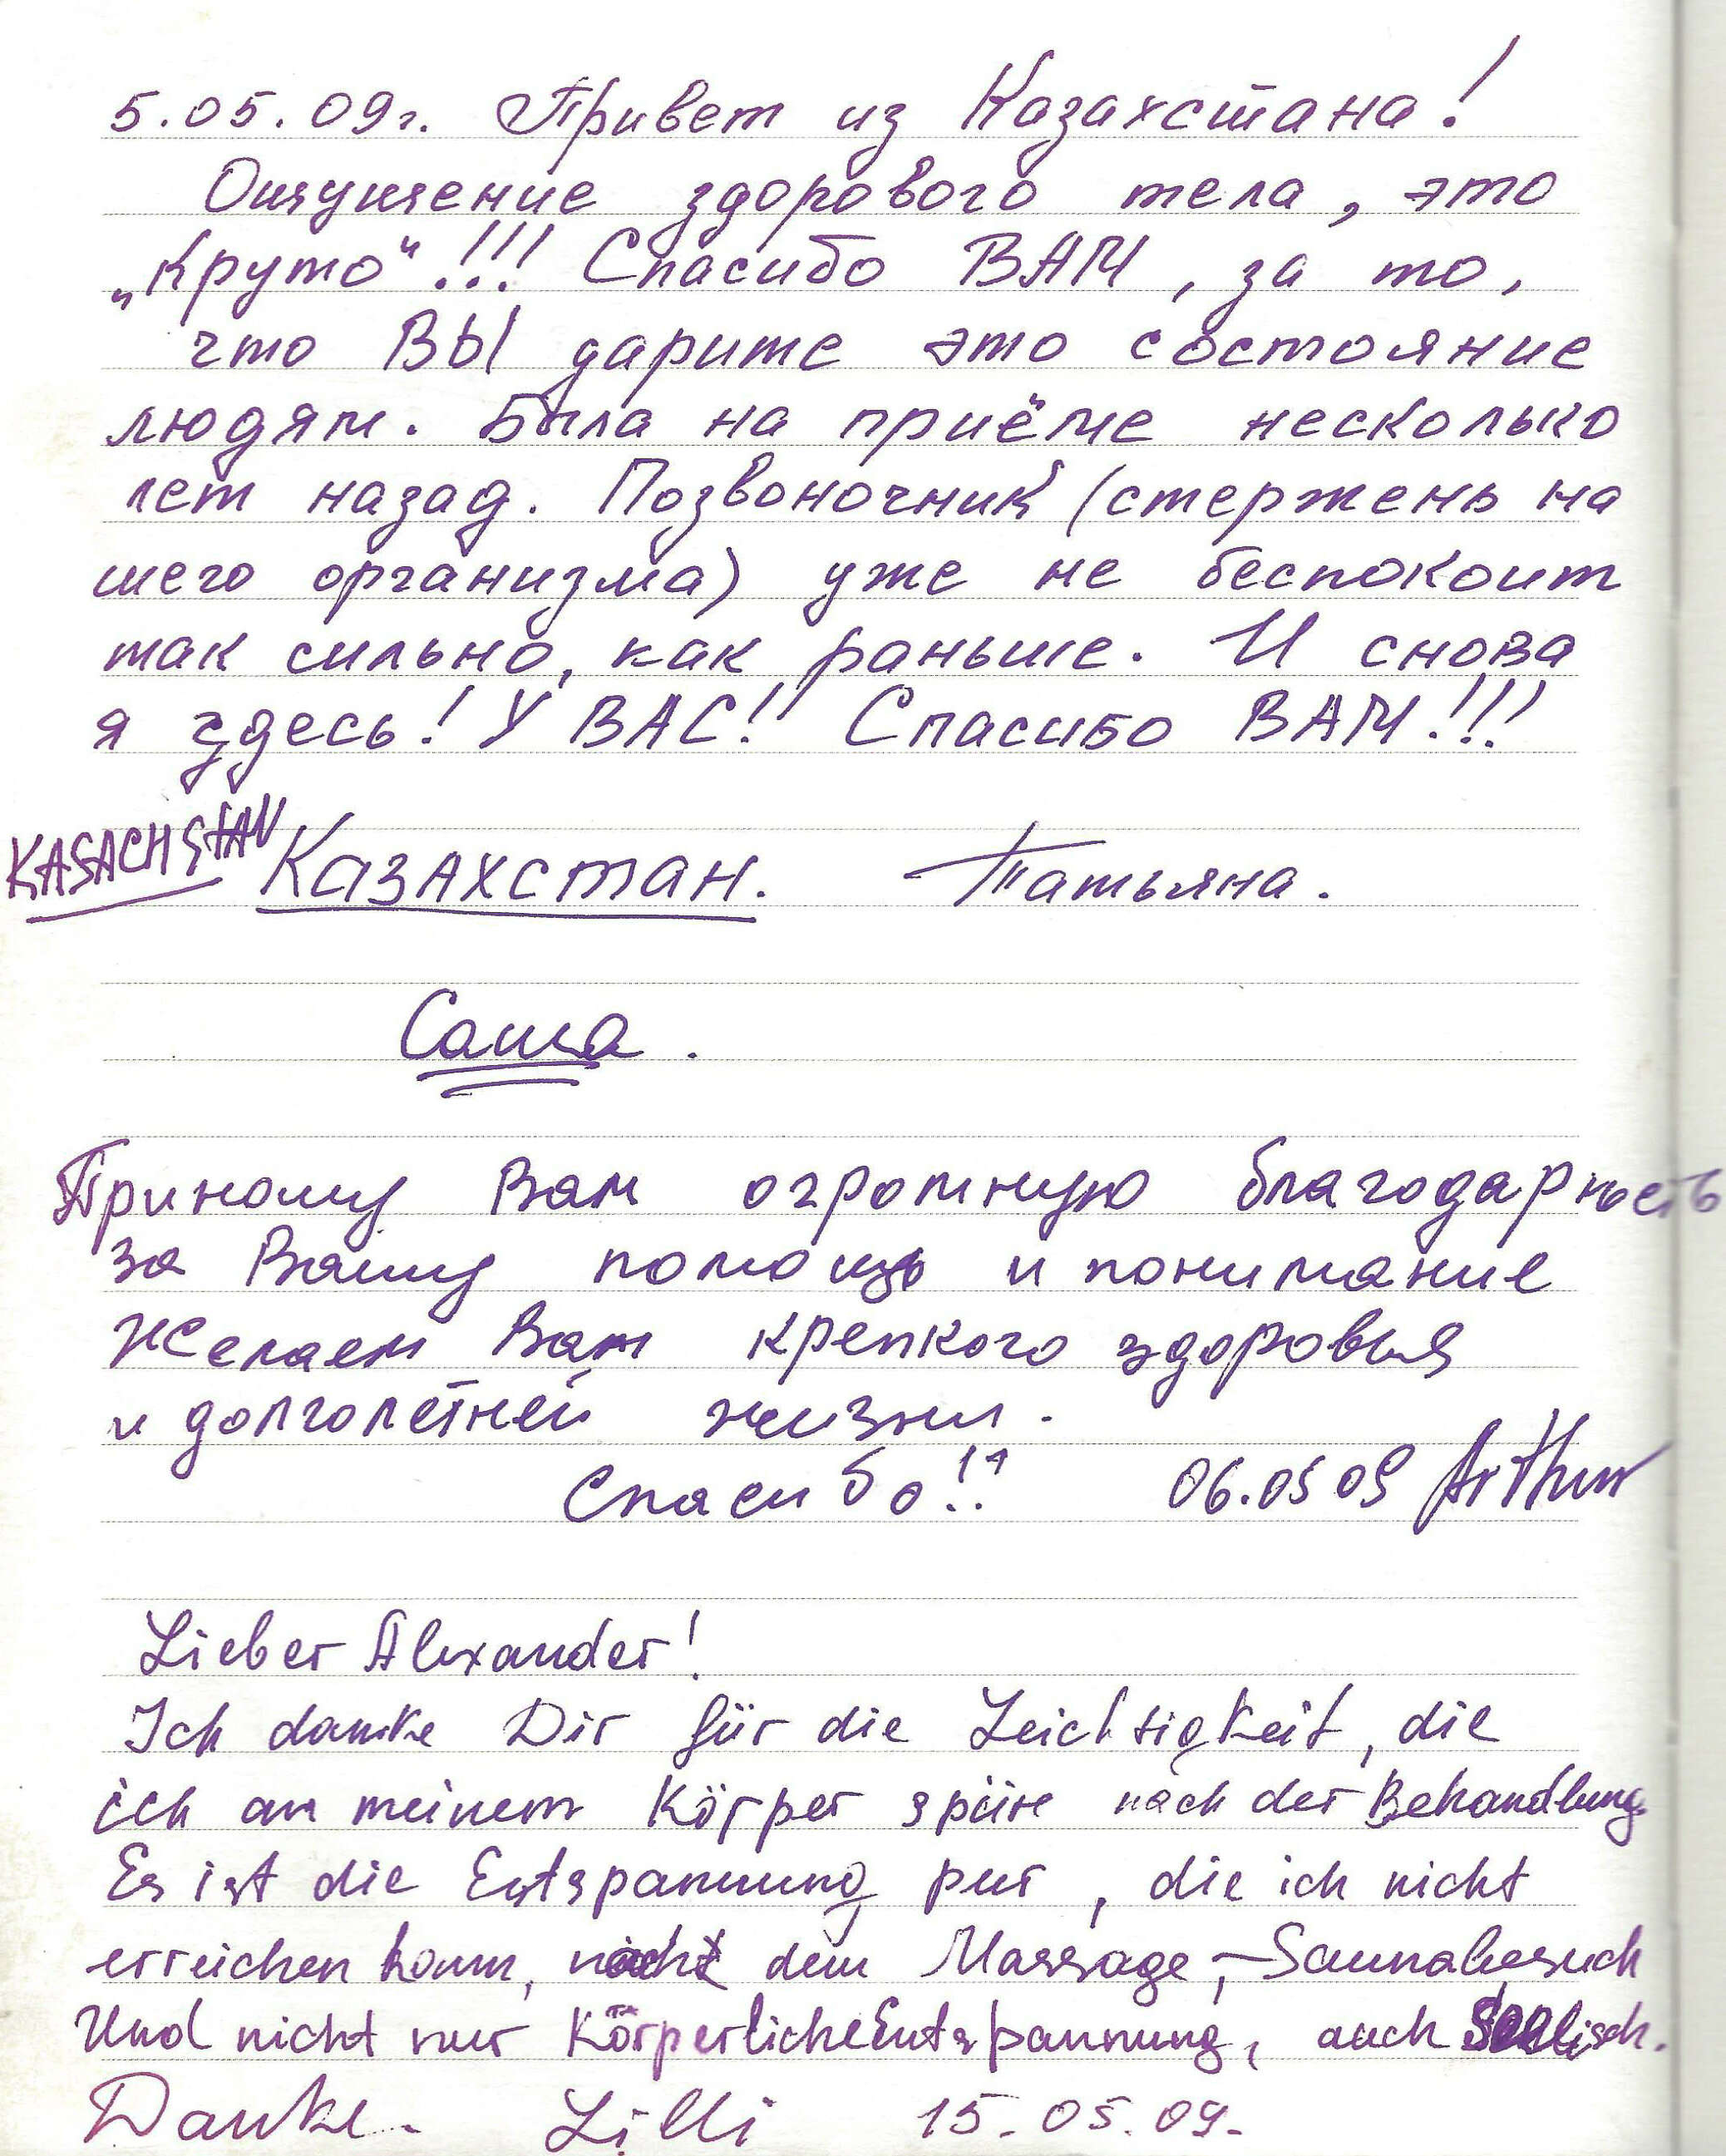 5.05.09г. Привет из Казахстана!
Ощущение здорового тела, это
„Круто“!!! Спасибо ВАМ, за то,
что ВЫ дарите это состояние
людям. Была на приёме несколько
лет назад. Позвоночник (стержень на
шего организма) уже не беспокоит
так сильно, как раньше. И снова
я здесь! У ВАС!! Спасибо ВАМ!!!
KASACHSTAN Казахстан. Татьяна.
Саша.
Приношу Вам огромную благодарность
за Вашу помощь и понимание
Желаем Вам крепкого здоровья
и долголетней жизни.
Спасибо!! 06.05 09 Arthur
Lieber Alexander!
Ich danke Dir für die Leichtigkeit, die
ich an meinem Körper spüre nach der Behandlung.
Es ist die Entspannung pur, die ich nicht
erreichen kann, nach dem Massage,-Saunabesuch
Und nicht nur KörperlicheEntspannung, auch Seelisch.
Danke. Lilli 15.05.09.